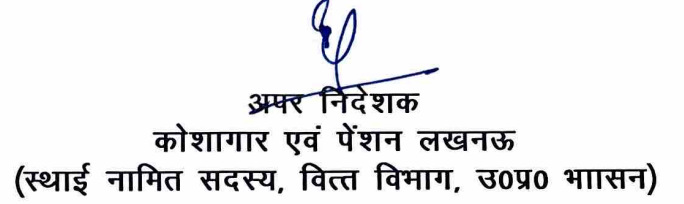 अपर निदेशक
कोशागार एवं पेंशन लखनऊ
(स्थाई नामित सदस्य, वित्त विभाग, उ0प्र0 भाासन)